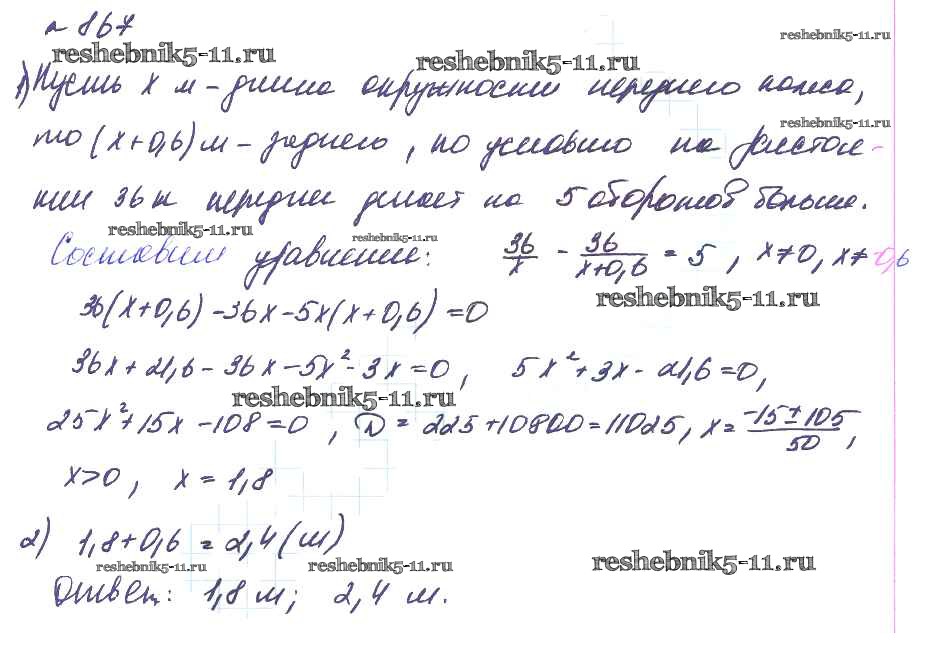 № 867
reshebnik5-11.ru
reshebnik5-11.ru
reshebnik5-11.ru
1) Пусть x м - длина окружности переднего колеса,
reshebnik5-11.ru
то (x+0,6) м - заднего, по условию на расстоя-
нии 36 м переднее делает на 5 оборотов больше.
reshebnik5-11.ru
reshebnik5-11.ru
Составим уравнение: 36/x - 36/(x+0,6) = 5, x≠0, x≠-0,6
reshebnik5-11.ru
36(x+0,6) - 36x - 5x(x+0,6) = 0
36x + 21,6 - 36x - 5x² - 3x = 0, 5x² + 3x - 21,6 = 0,
reshebnik5-11.ru
25x² + 15x - 108 = 0, D = 225 + 10800 = 11025, x = (-15 ± 105)/50,
x>0, x = 1,8
2) 1,8 + 0,6 = 2,4 (м)
reshebnik5-11.ru
reshebnik5-11.ru
reshebnik5-11.ru
Ответ: 1,8 м; 2,4 м.